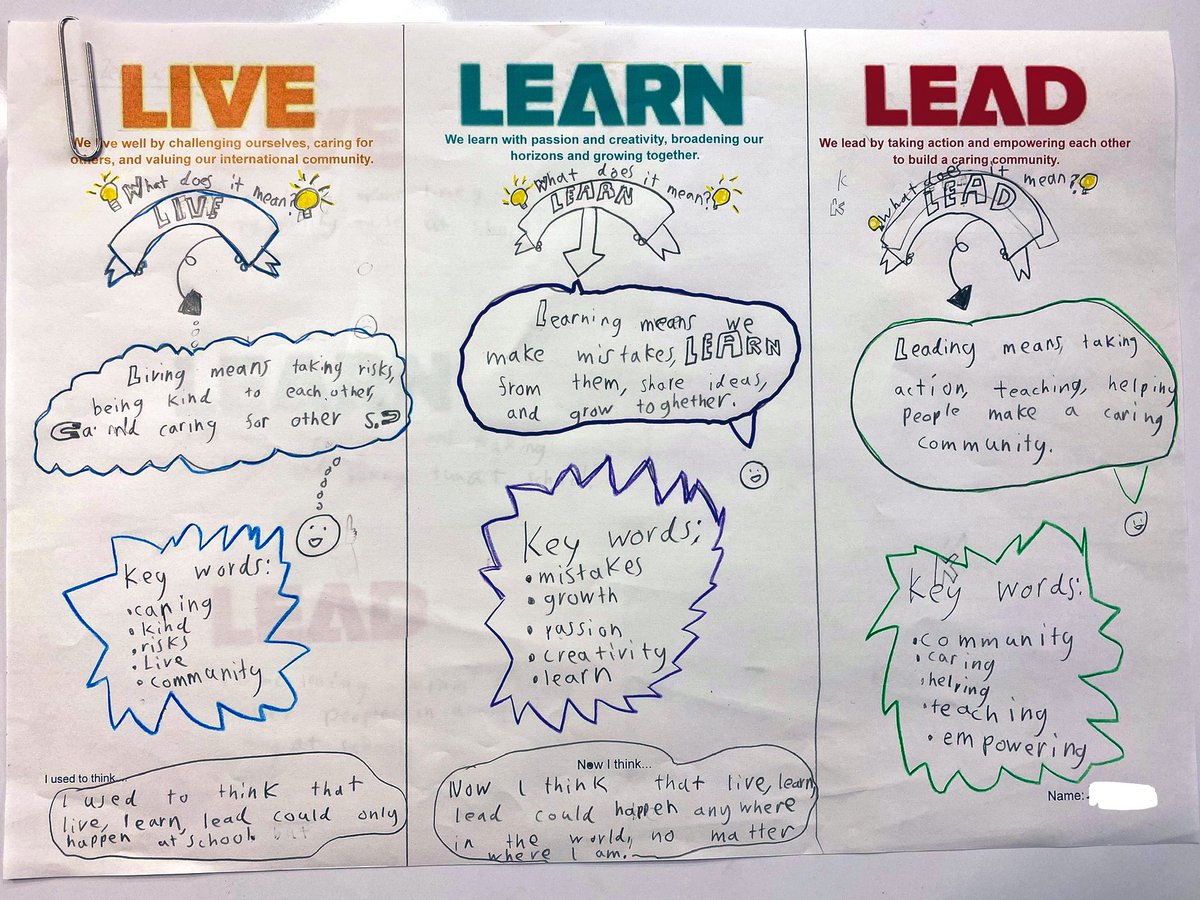 LIVE
We live well by challenging ourselves, caring for
others, and valuing our international community.
What does it mean?
LIVE
Living means taking risks,
being kind to each other,
and caring for other s.
Key words:
• caring
• kind
• risks
• Live
• community
I used to think...
I used to think that
live, learn, lead could only
happen at school. but
LEARN
We learn with passion and creativity, broadening our
horizons and growing together.
What does it mean?
LEARN
Learning means we
make mistakes, LEARN
from them, share ideas,
and grow toghether.
Key words:
• mistakes
• growth
• passion
• creativity
• learn
Now I think...
Now I think that live, learn,
lead could happen anywhere
in the world, no matter
where I am.
LEAD
We lead by taking action and empowering each other
to build a caring community.
What does it mean?
LEAD
Leading means, taking
action, teaching, helping
people make a caring
community.
Key words:
• community
• caring
• helping
• teaching
• empowering
Name: